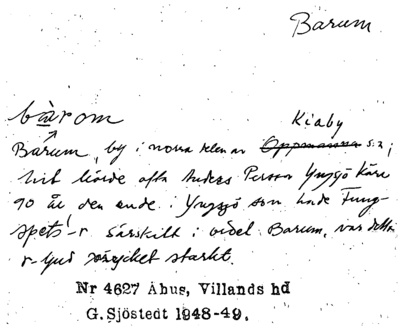 Barum
bàrom
Kiaby
Barum, by i norra delen av Oppmanna s:n;
hit hörde ofta Anders Person Yngsjö Kära
90 år, den ende i Yngsjö som hade Tung-
spets-r särskilt i ordet Barum, var detta
r-ljud mycket starkt.
Nr 4627 Åhus, Villands hd
G. Sjöstedt 1948-49.